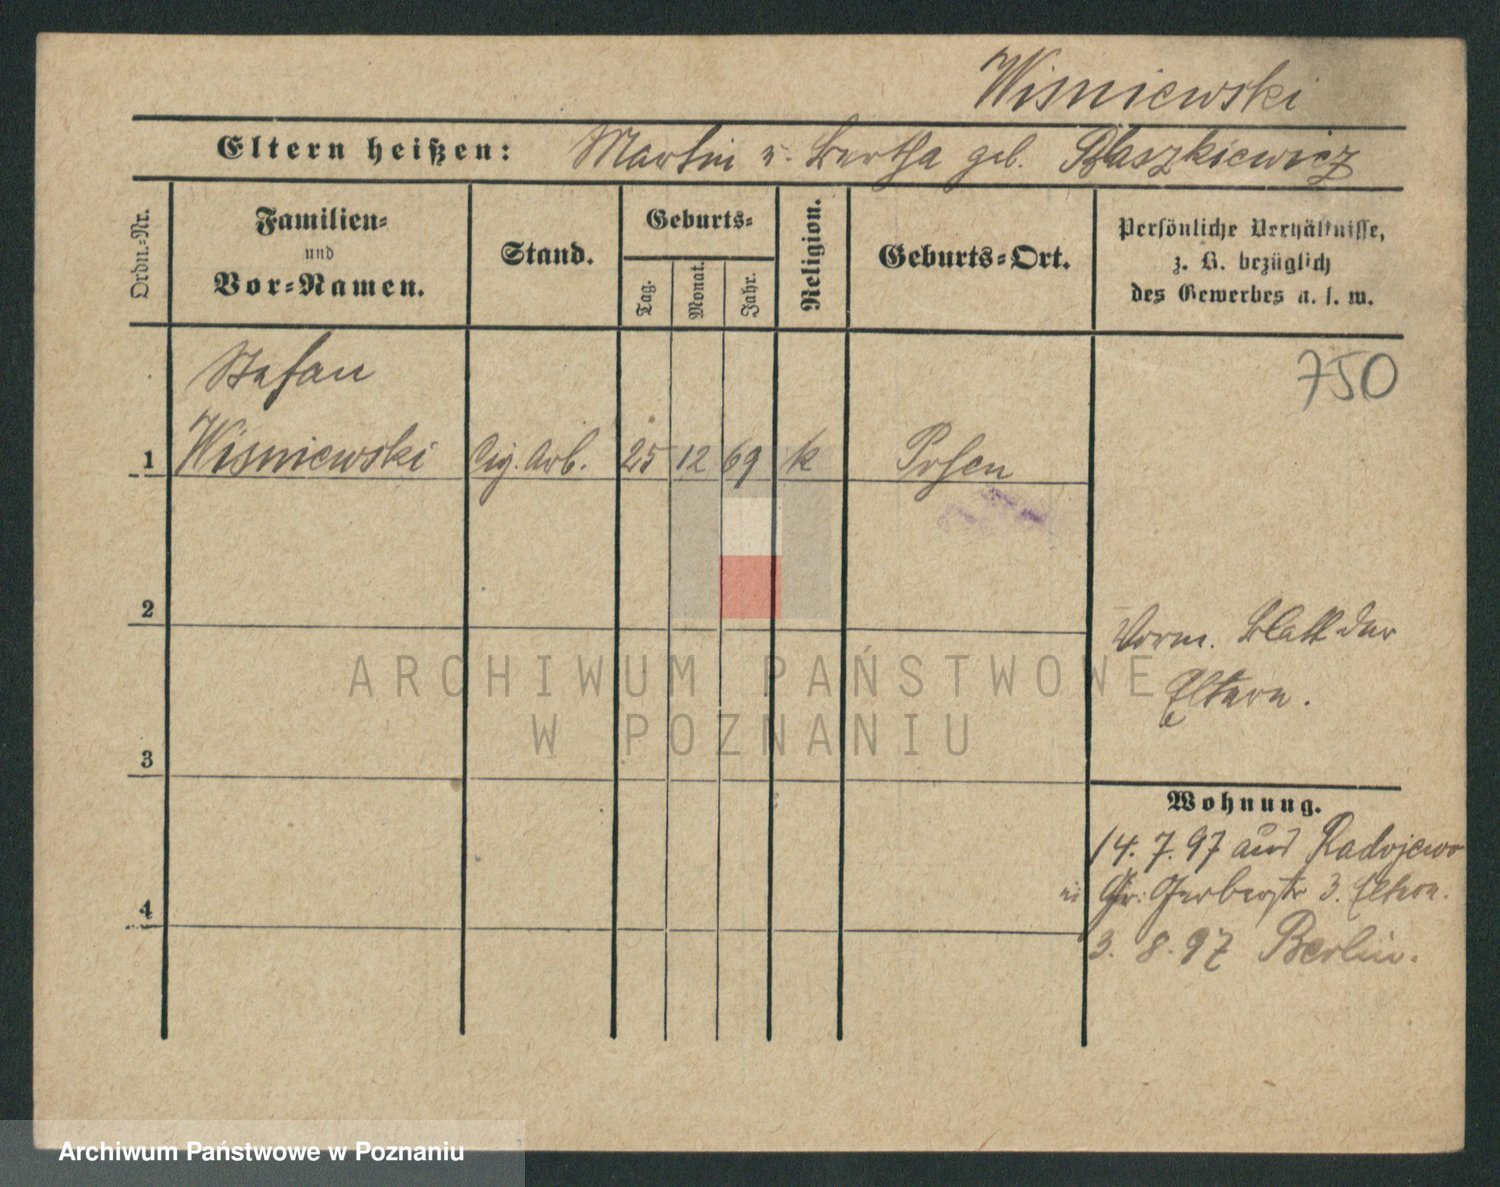 Wisniewski
Eltern heißen: Martin u. Bertha geb. Blaszkiewicz
Ordn.-Nr.
Familien-
und
Vor-Namen.
Stand.
Geburts-
Tag.
Monat.
Jahr.
Religion.
Geburts-Ort.
Persönliche Verhältnisse,
z. B. bezüglich
des Gewerbes u. s. w.
750
Stefan
1 Wisniewski Cig. Arb. 25 12 69 k Posen
2
Vorm. Blatt der
Eltern.
ARCHIWUM PAŃSTWOWE
W POZNANIU
3
Wohnung.
14. 7. 97 aus Radojewo
Gr. Gerberstr 3. Eltern.
4
3. 8. 97 Berlin.
Archiwum Państwowe w Poznaniu